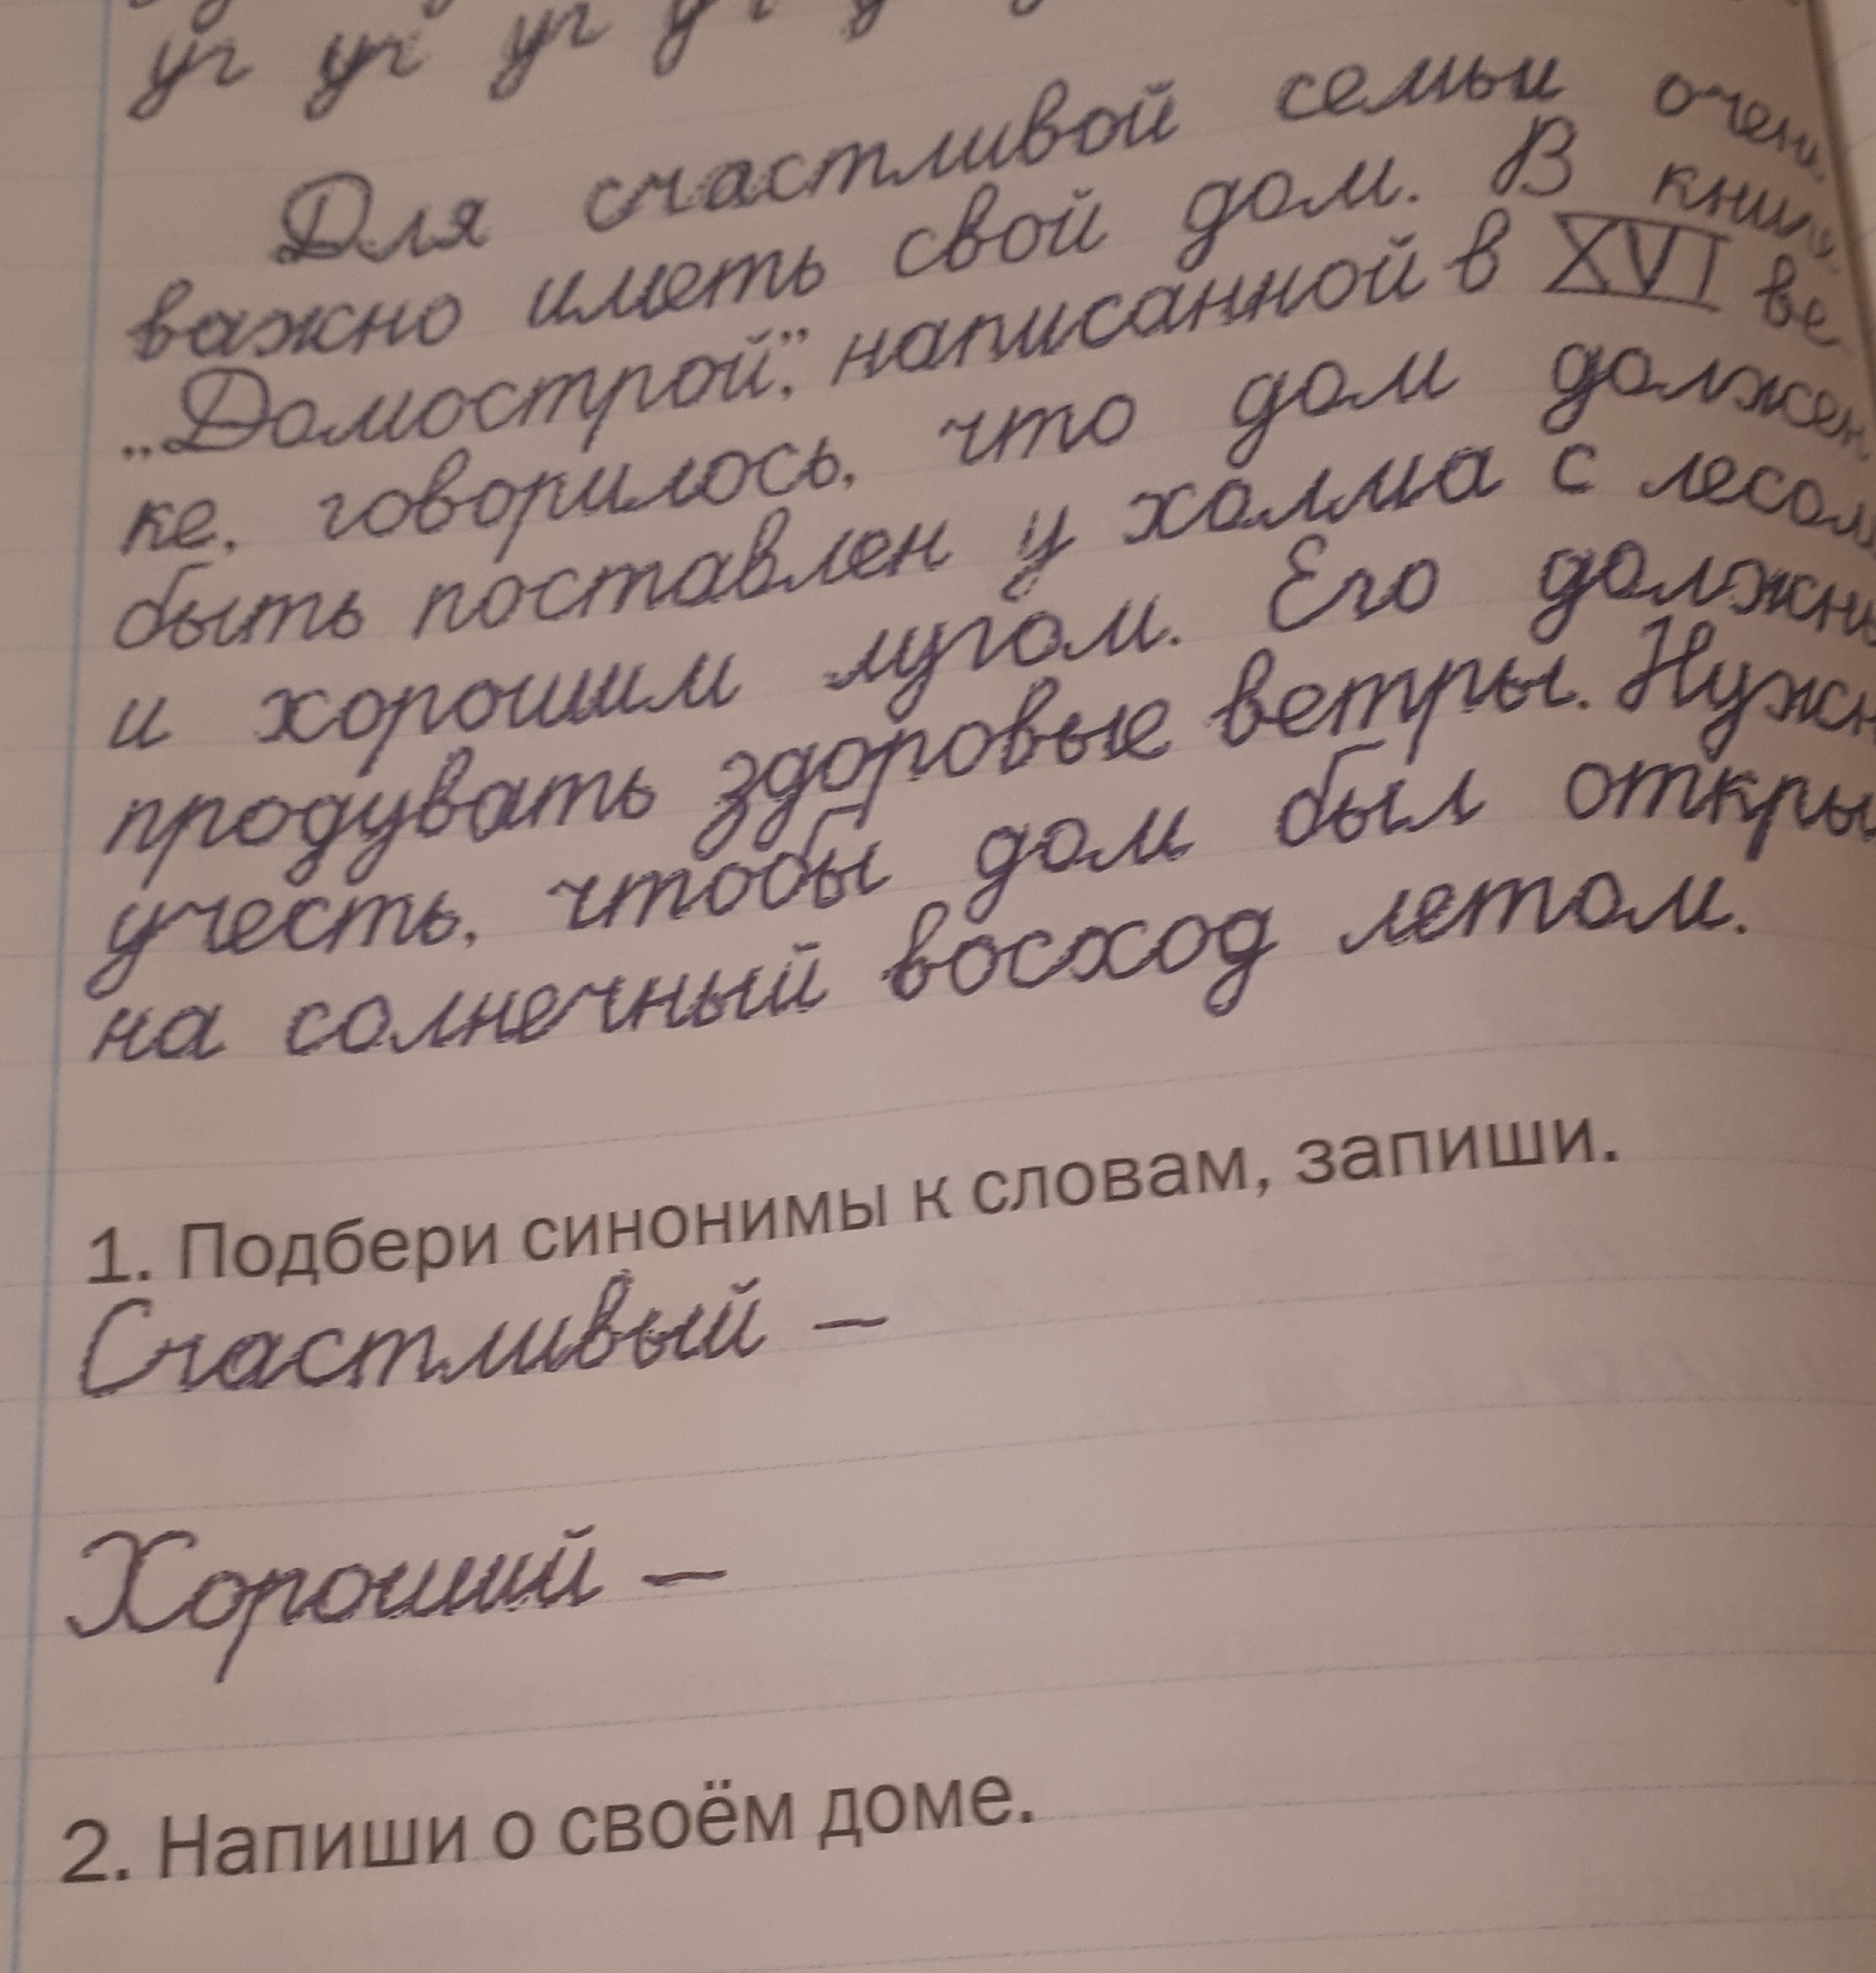 уг уг уг уг
Для счастливой семьи очень
важно иметь свой дом. В книге
„Домострой”, написанной в XVI ве
ке, говорилось, что дом должен
быть поставлен у холма с лесом
и хорошим лугом. Его должны
продувать здоровые ветры. Нужн
учесть, чтобы дом был откры
на солнечный восход летом.
1. Подбери синонимы к словам, запиши.
Счастливый –
Хороший –
2. Напиши о своём доме.